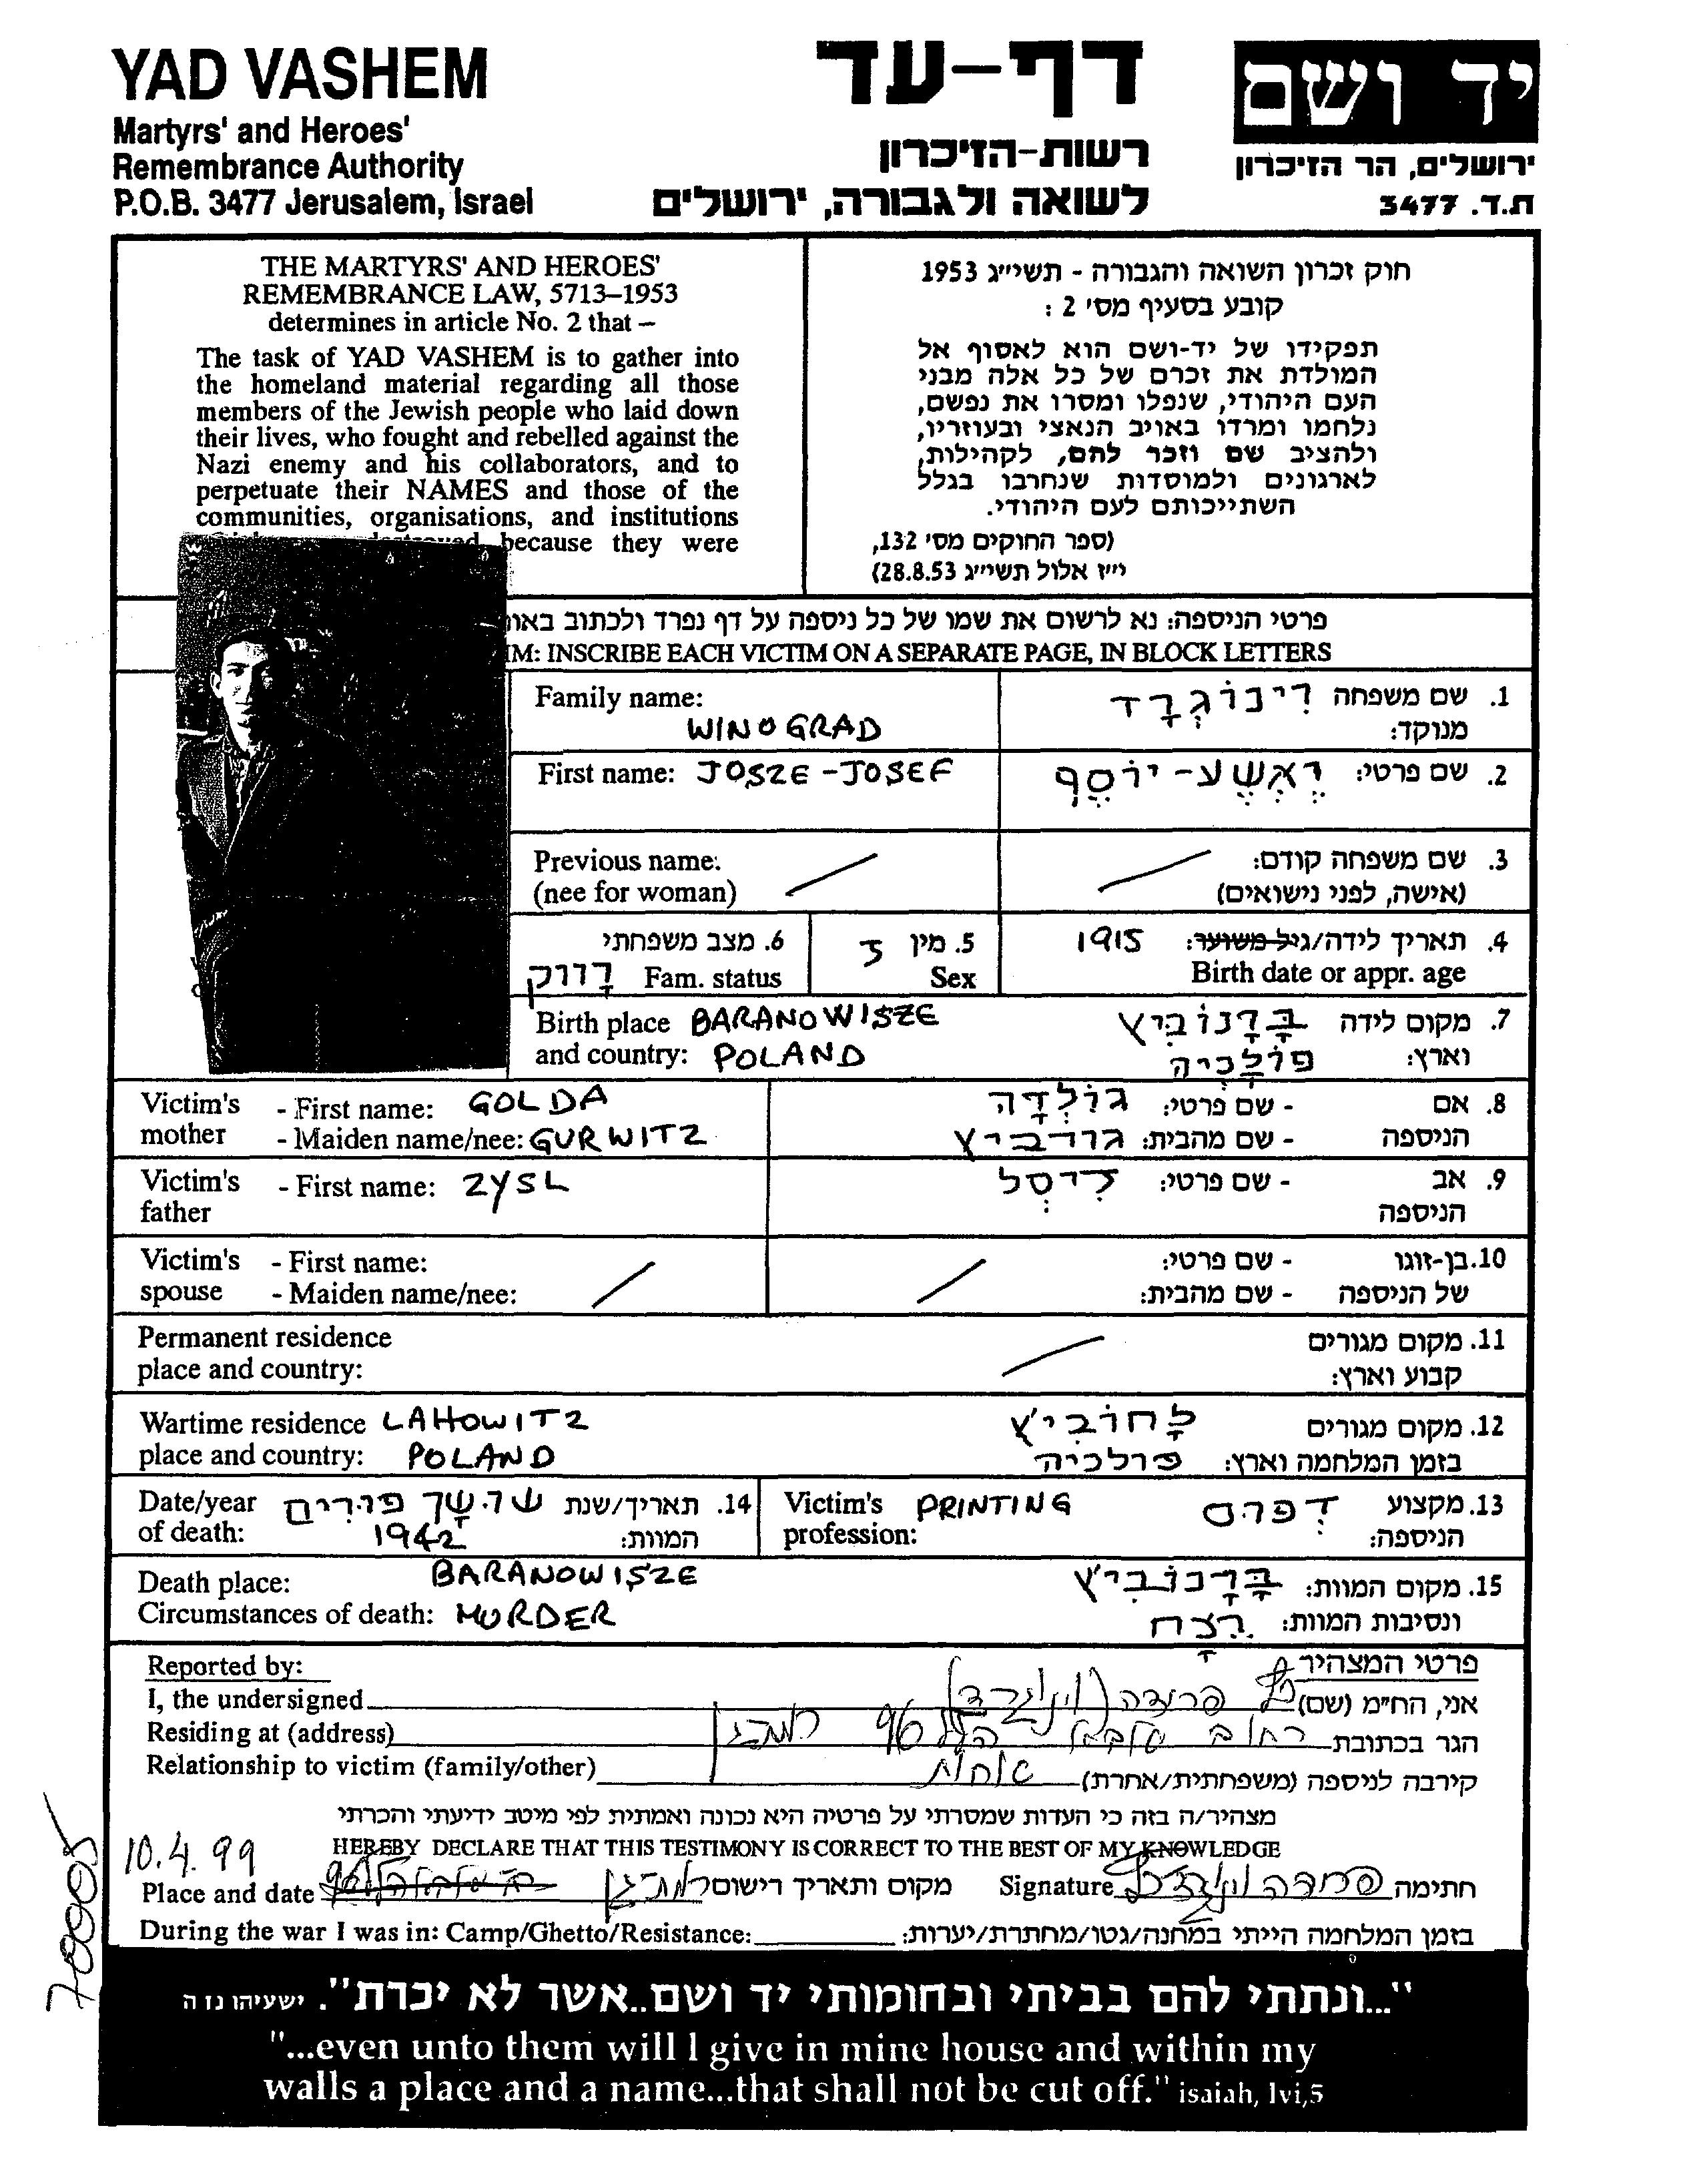 YAD VASHEM
Martyrs' and Heroes'
Remembrance Authority
P.O.B. 3477 Jerusalem, Israel
דף-עד
רשות-הזיכרון
לשואה ולגבורה, ירושלים
יד ושם
ירושלים, הר הזיכרון
ת.ד. 3477
THE MARTYRS' AND HEROES'
REMEMBRANCE LAW, 5713–1953
determines in article No. 2 that –
The task of YAD VASHEM is to gather into
the homeland material regarding all those
members of the Jewish people who laid down
their lives, who fought and rebelled against the
Nazi enemy and his collaborators, and to
perpetuate their NAMES and those of the
communities, organisations, and institutions
because they were
חוק זכרון השואה והגבורה - תשי״ג 1953
קובע בסעיף מס' 2 :
תפקידו של יד-ושם הוא לאסוף אל
המולדת את זכרם של כל אלה מבני
העם היהודי, שנפלו ומסרו את נפשם,
נלחמו ומרדו באויב הנאצי ובעוזריו,
ולהציב שם וזכר להם, לקהילות,
לארגונים ולמוסדות שנחרבו בגלל
השתייכותם לעם היהודי.
(ספר החוקים מס' 132,
י״ז אלול תשי״ג 28.8.53)
פרטי הניספה: נא לרשום את שמו של כל ניספה על דף נפרד ולכתוב באו
IM: INSCRIBE EACH VICTIM ON A SEPARATE PAGE, IN BLOCK LETTERS
Family name: 1. שם משפחה וִינוֹגְרָד
WINOGRAD מנוקד:
First name: JOSZE - JOSEF 2. שם פרטי: יוֹסֵף
Previous name: 3. שם משפחה קודם:
(nee for woman) (אישה, לפני נישואים)
6. מצב משפחתי 5. מין ז 4. תאריך לידה/גיל משוער: 1915
Fam. status רווק Sex Birth date or appr. age
Birth place BARANOWISZE 7. מקום לידה בָּרָנוֹבִיץ
and country: POLAND וארץ: פּוֹלָניה
Victim's - First name: GOLDA 8. אם - שם פרטי: גוֹלְדָה
mother - Maiden name/nee: GURWITZ הניספה - שם מהבית: גורביץ
Victim's - First name: ZYSL 9. אב - שם פרטי: זִיסְל
father הניספה
Victim's - First name: 10. בן-זוגו - שם פרטי:
spouse - Maiden name/nee: של הניספה - שם מהבית:
Permanent residence 11. מקום מגורים
place and country: קבוע וארץ:
Wartime residence LAHOWITZ 12. מקום מגורים לָחוֹבִיץ
place and country: POLAND בזמן המלחמה וארץ: פולניה
Date/year 14. תאריך/שנת פורים Victim's PRINTING 13. מקצוע דְפּוּס
of death: 1942 המוות: profession: הניספה:
Death place: BARANOWISZE 15. מקום המוות: בָּרָנוֹבִיץ
Circumstances of death: MURDER ונסיבות המוות: רֶצָח
Reported by: פרטי המצהיר
I, the undersigned אני, הח״מ (שם)
Residing at (address) הגר בכתובת רחוב 96
Relationship to victim (family/other) קירבה לניספה (משפחתית/אחרת) אחות
מצהיר/ה בזה כי העדות שמסרתי על פרטיה היא נכונה ואמתית לפי מיטב ידיעתי והכרתי
HEREBY DECLARE THAT THIS TESTIMONY IS CORRECT TO THE BEST OF MY KNOWLEDGE
10.4.99
Place and date מקום ותאריך רישום Signature חתימה
During the war I was in: Camp/Ghetto/Resistance: בזמן המלחמה הייתי במחנה/גטו/מחתרת/יערות:
70005
"...ונתתי להם בביתי ובחומותי יד ושם..אשר לא יכרת". ישעיהו נז ה
"...even unto them will I give in mine house and within my
walls a place and a name...that shall not be cut off." isaiah, lvi,5